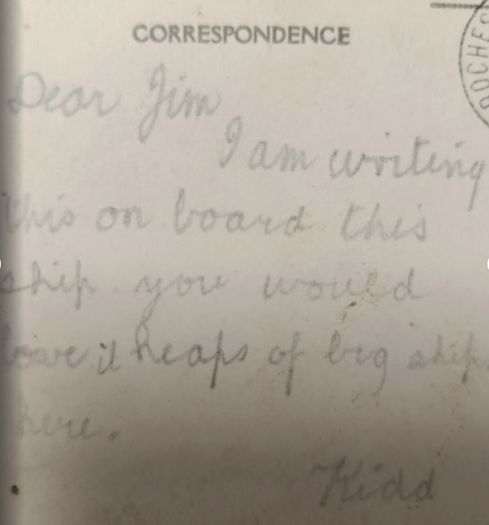 CORRESPONDENCE
OCHES
Dear Jim
I am writing
this on board this
ship you would
love it heaps of big ship
here.
Kidd